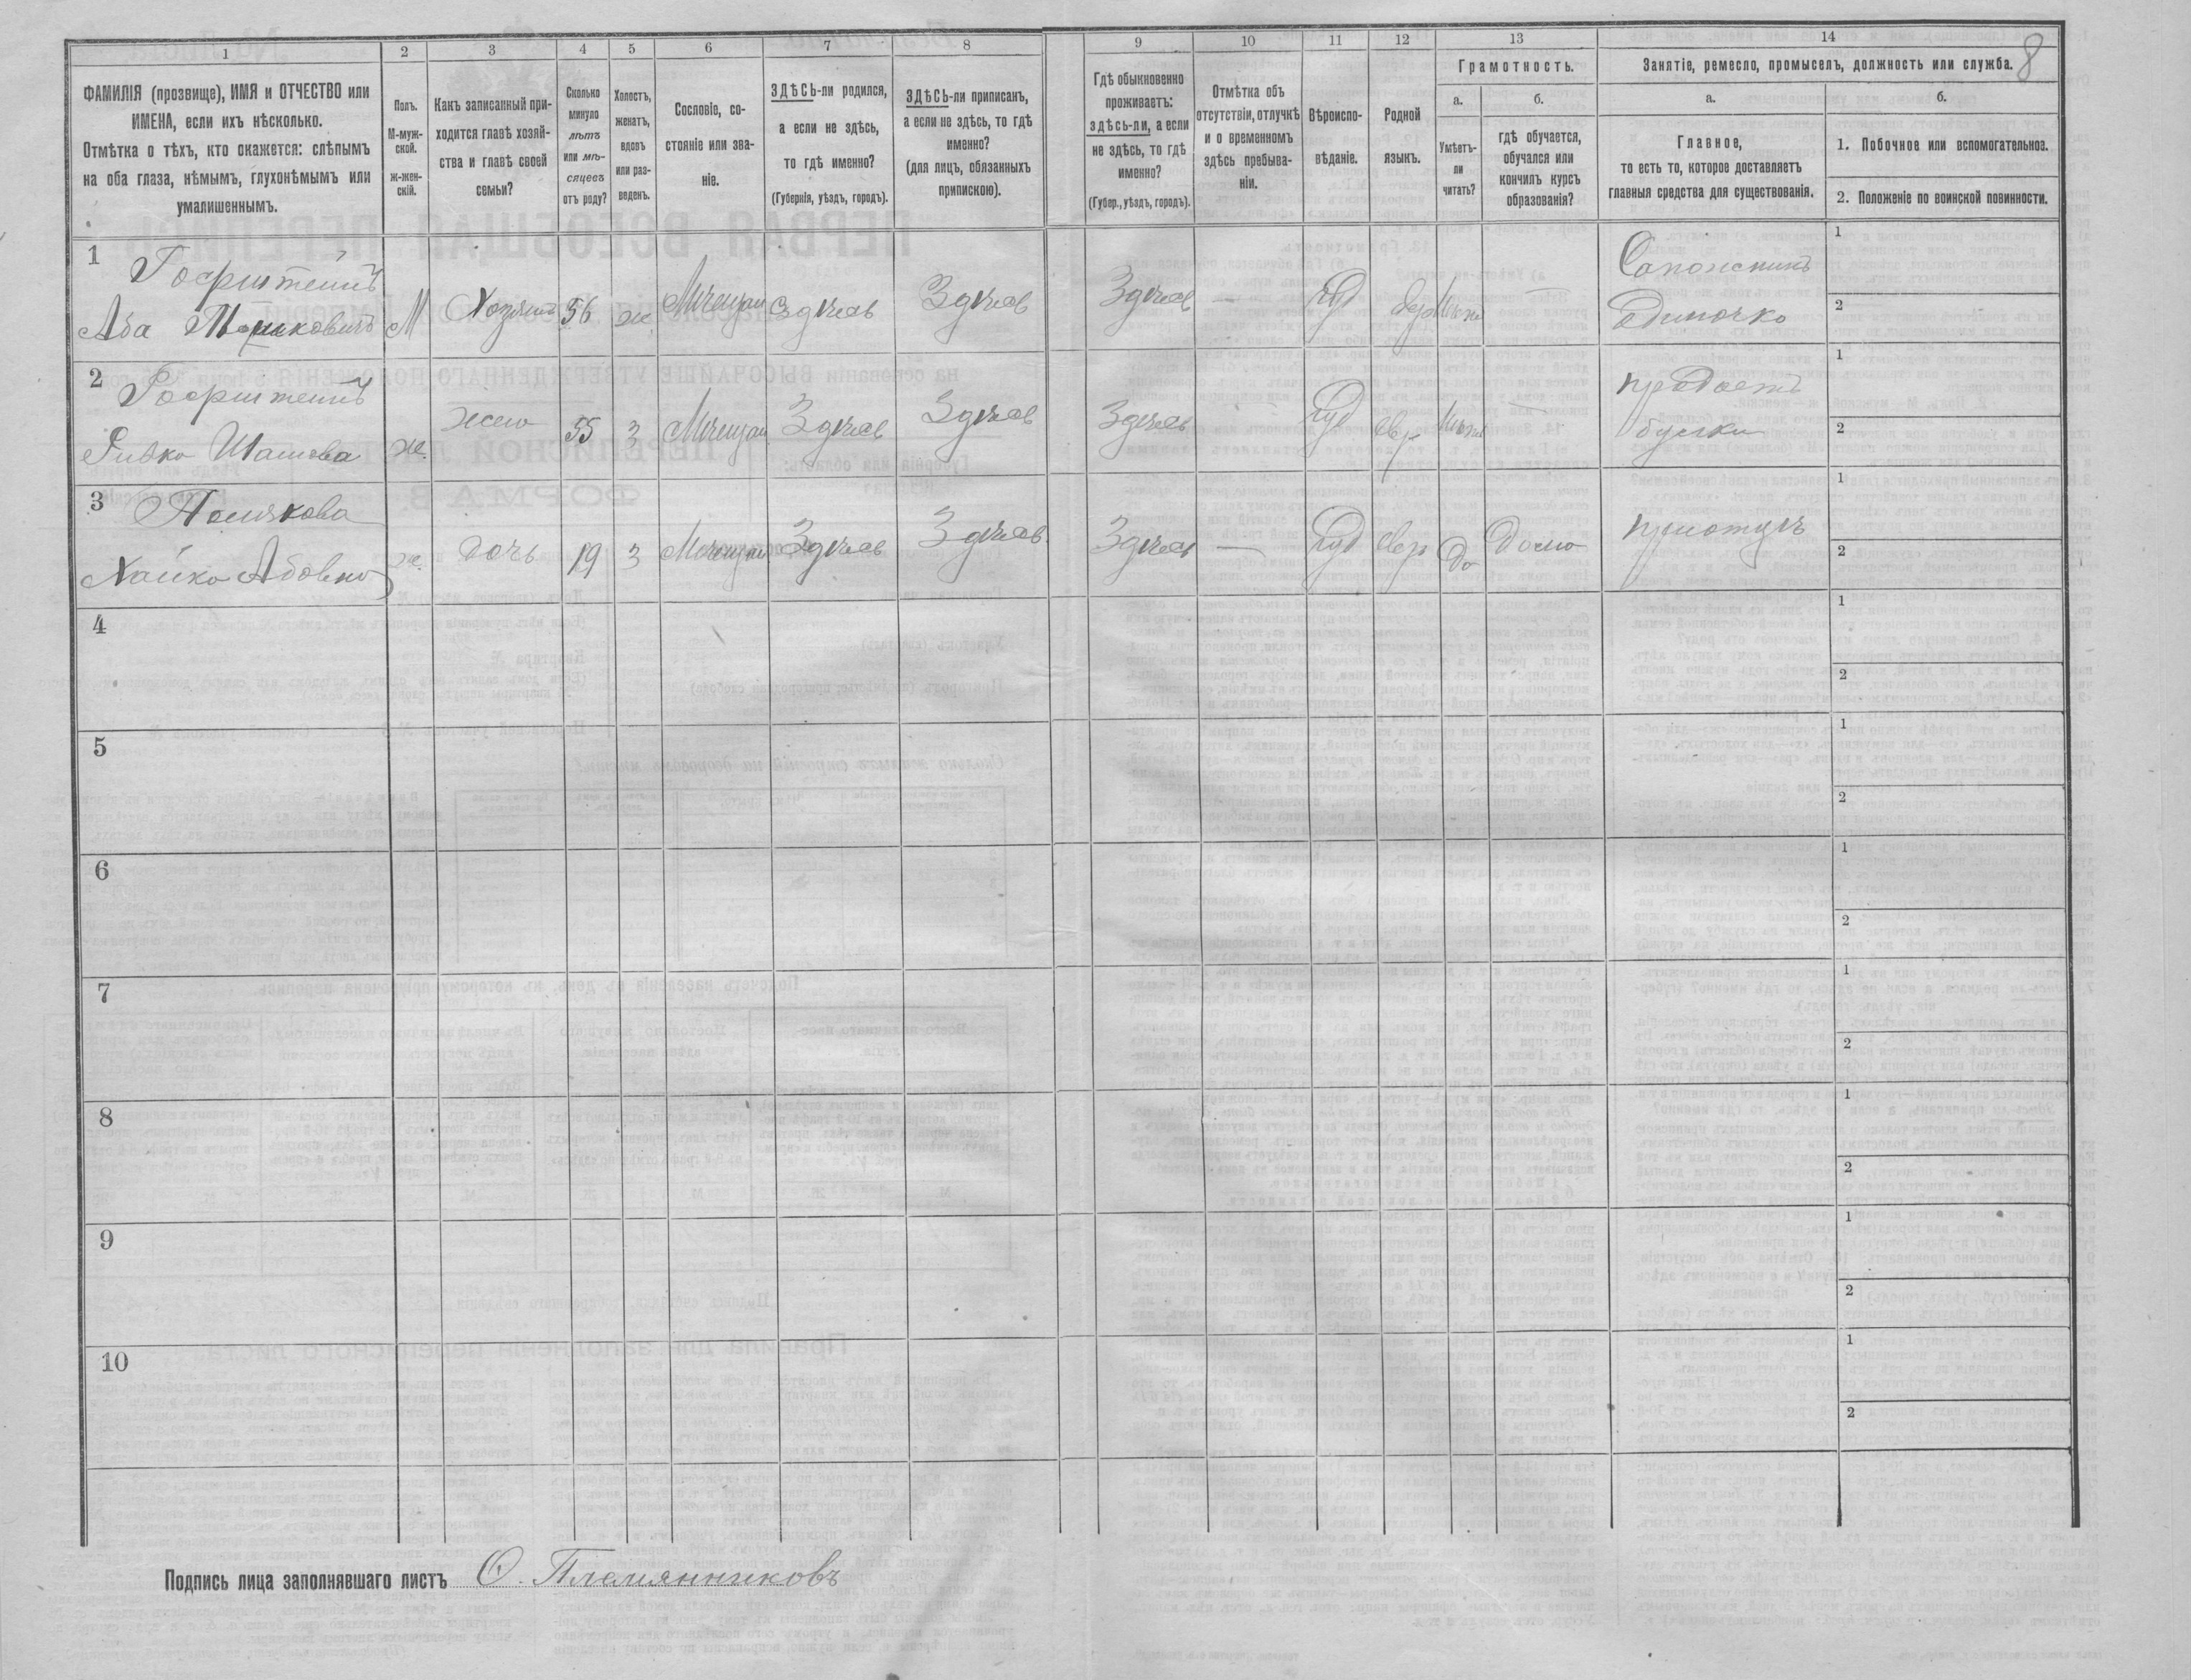 8
1 2 3 4 5 6 7 8 9 10 11 12 13 14
ФАМИЛІЯ (прозвище), ИМЯ и ОТЧЕСТВО или
ИМЕНА, если ихъ нѣсколько.
Отмѣтка о тѣхъ, кто окажется: слѣпымъ
на оба глаза, нѣмымъ, глухонѣмымъ или
умалишеннымъ.
Полъ.
М-муж-
ской.
ж-жен-
скій.
Какъ записанный при-
ходится главѣ хозяй-
ства и главѣ своей
семьи?
Сколько
минуло
лѣтъ
или мѣ-
сяцевъ
отъ роду?
Холостъ,
женатъ,
вдовъ
или раз-
веденъ.
Сословіе, со-
стояніе или зва-
ніе.
ЗДѢСЬ-ли родился,
а если не здѣсь,
то гдѣ именно?
(Губернія, уѣздъ, городъ).
ЗДѢСЬ-ли приписанъ,
а если не здѣсь, то гдѣ
именно?
(для лицъ, обязанныхъ
припискою).
Гдѣ обыкновенно
проживаетъ:
здѣсь-ли, а если
не здѣсь, то гдѣ
именно?
(Губер., уѣздъ, городъ).
Отмѣтка объ
отсутствіи, отлучкѣ
и о временномъ
здѣсь пребыва-
ніи.
Вѣроиспо-
вѣданіе.
Родной
языкъ.
Грамотность.
а.
Умѣетъ-
ли
читать?
б.
гдѣ обучается,
обучался или
кончилъ курсъ
образованія?
Занятіе, ремесло, промыселъ, должность или служба.
а.
Главное,
то есть то, которое доставляетъ
главныя средства для существованія.
б.
1. Побочное или вспомогательное.
2. Положеніе по воинской повинности.
1 Гофштейнъ
Аба М Хозяинъ 56 ж Мѣщан Здѣсь Здѣсь Здѣсь — Іуд Евр — Сапожникъ
одиночка
1
2
2 Гофштейнъ
Ривка ж. жена 55 З Мѣщан Здѣсь Здѣсь Здѣсь — Іуд Евр продаетъ
булки
1
2
3 Полякова
Хайка Абовна ж. дочь 19 З Мѣщан Здѣсь Здѣсь Здѣсь — Іуд Евр Да дома
1
2
4
1
2
5
1
2
6
1
2
7
1
2
8
1
2
9
1
2
10
1
2
Подпись лица заполнявшаго листъ О. Племянниковъ